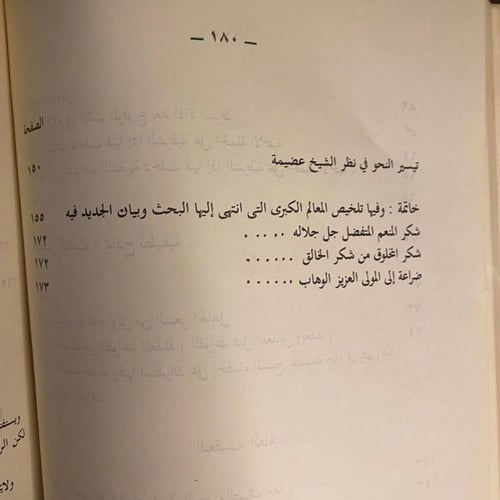 — ١٨٠ —
الصفحة
تيسير النحو في نظر الشيخ عضيمة ١٥٠
خاتمة : وفيها تلخيص المعالم الكبرى التى انتهى إليها البحث وبيان الجديد فيه ١٥٥
شكر المنعم المتفضل جل جلاله . . . . . ١٧٢
شكر المخلوق من شكر الخالق . . . . . . ١٧٢
ضراعة إلى المولى العزيز الوهاب . . . . . . ١٧٣
لكن